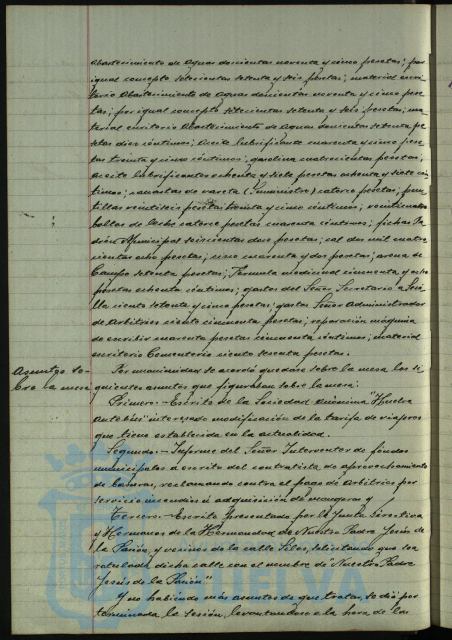 Abastecimiento de Aguas doscientas noventa y cinco pesetas; por
igual concepto setecientas setenta y seis pesetas; material escri-
torio Abastecimiento de Aguas doscientas noventa y cinco pese-
tas; por igual concepto setecientas setenta y seis pesetas; ma-
terial escritorio Abastecimiento de Aguas doscientas setenta pe-
setas diez céntimos; aceite lubrificante cuarenta y cinco pese-
tas treinta y cinco céntimos; gasolina cuatrocientas pesetas;
aceite lubrificantes ochenta y siete pesetas ochenta y siete cén-
timos; canastas de vareta (Suministro) catorce pesetas; pun-
tillas veintiseis pesetas treinta y cinco céntimos;
bollas de leche catorce pesetas cuarenta céntimos; fichas Pa-
drón Municipal seiscientas dos pesetas; cal dos mil cuatro-
cientas ocho pesetas; cuarenta y dos pesetas; arena de
Campo setenta pesetas; Fórmula medicinal cincuenta y ocho
pesetas ochenta céntimos; gastos del Señor Secretario a Sevi-
lla ciento setenta y cinco pesetas; gastos Señor Administrador
de Arbitrios ciento cincuenta pesetas; reparación máquina
de escribir cuarenta pesetas cincuenta céntimos; material
escritorio Cementerio ciento sesenta pesetas.
Asuntos so-
bre la mesa
Por unanimidad se acordó quedase sobre la mesa los si-
guientes asuntos que figuraban sobre la mesa:
Primero.- Escrito de la Sociedad Anónima "Huelva
Autobús" interesando modificación de la tarifa de viajeros
que tiene establecida en la actualidad.
Segundo.- Informe del Señor Interventor de fondos
municipales a escrito del contratista de aprovechamiento
de basuras, reclamando contra el pago de Arbitrios por
servicio incendios ó adquisición de mangueras y
Tercero.- Escrito presentado por la Junta Directiva
y Hermanos de la Hermandad de Nuestro Padre Jesús de
la Pasión, y vecinos de la calle Silos, solicitando que sea
rotulada dicha calle con el nombre de Nuestro Padre
Jesús de la Pasión"
Y no habiendo más asuntos de que tratar, se dió por
terminada la sesión, levantandose a la hora de las
HUELVA